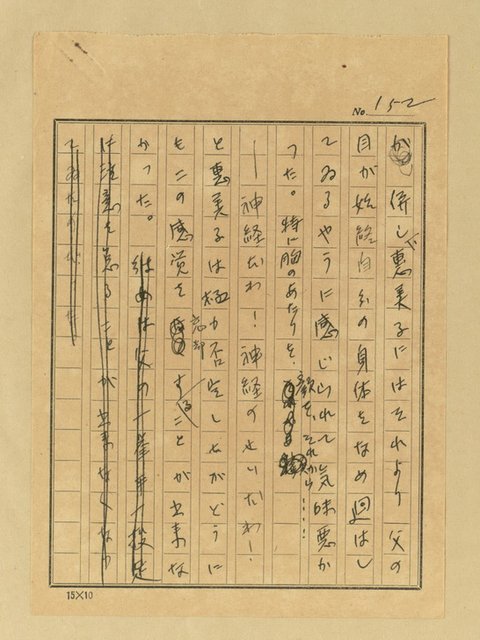 No. 152
が、併し、恵美子にはそれより父の
目が始終自分の身体をなめ廻はし
てゐるやうに感じられて気味悪か
つた。特に胸のあたりを、顔を、それから……!
― 神経だわ! 神経のせいだわ!
と恵美子は極力否定しもがどうに
もこの感覚を忘却することが出来な
かつた。彼女は父の一挙手一投足
に注意を怠ることが出来なくなつ
てゐたのだつた
15×10